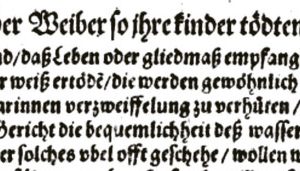 der Weiber so jhre kinder tödten
d/daß Leben oder gliedmaß empfang
r weiß ertödẽ/die werden gewöhnlich
arinnen verzweiffelung zu verhüten/
Gericht die bequemlicheit deß wasser
er solches vbel offt geschehe/wollen w